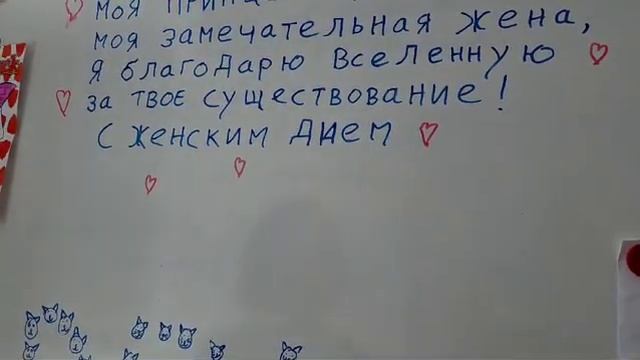 моя
моя замечательная жена,
я благодарю вселенную
за твое существование!
С женским днем